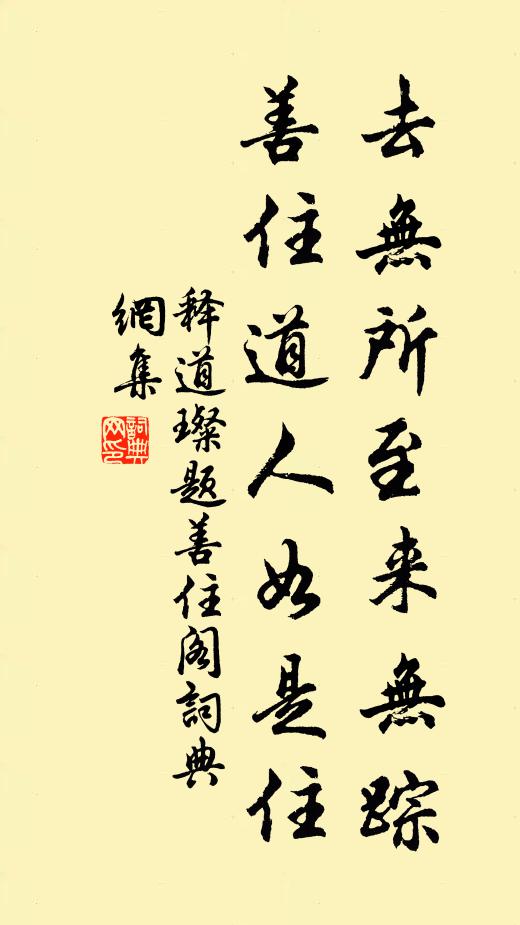 去無所至来無踪
善住道人如是住
释道璨题善住阁詞典
網集
詞典
网印